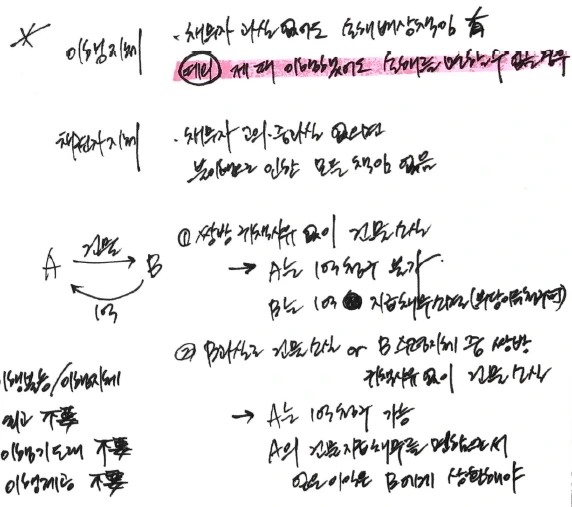 이행지체
· 채무자 과실 없어도 손해배상책임 有
예외 제때 이행했어도 손해를 면할 수 없는 경우
채권자지체
· 채무자 고의·중과실 없으면
불이행으로 인한 모든 책임 없음
A 건물 → B
10억
① 쌍방 귀책사유 없이 건물소실
→ A는 10억청구 불가
B는 10억 지급채무소멸
② B과실로 건물소실 or B수령지체 중 쌍방
귀책사유 없이 건물소실
→ A는 10억청구 가능
A의 건물 채무를 면함으로서
얻은 이익은 B에게 상환해야
이행불능/이행지체
최고 不要
이행기도래 不要
이행제공 不要